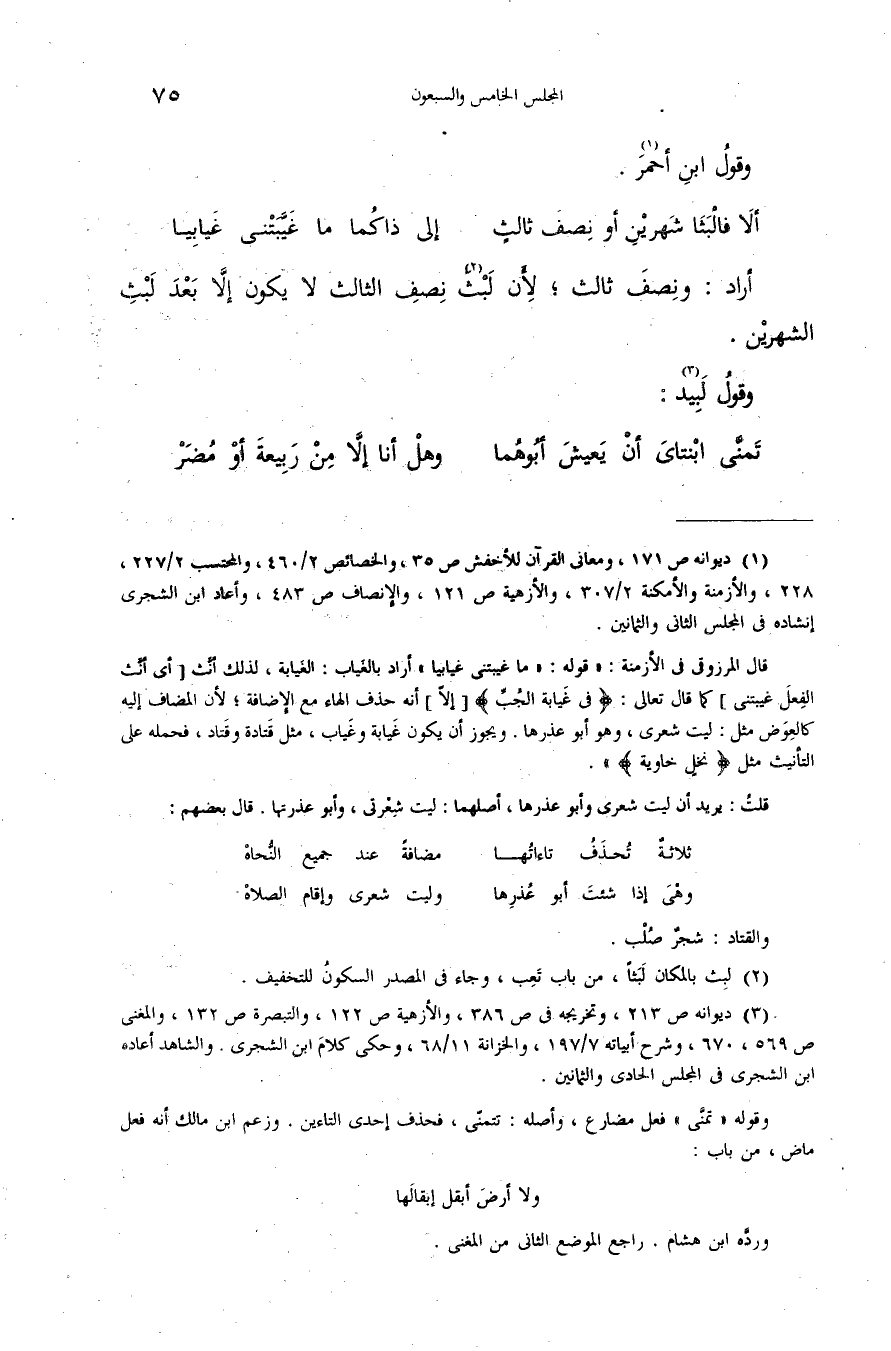 المجلس الخامس والسبعون ٧٥
وقولُ ابنِ أحمرَ(١) .
ألَا فالْبَثَا شَهريْنِ أو نِصفَ ثالثٍ إلى ذاكُما ما غَيَّبَتْنى غَيابِيا
أراد : ونِصفَ ثالث ؛ لِأَن لَبْثَ(٢) نِصفِ الثالث لا يكون إلَّا بَعْدَ لَبْثِ
الشهريْن .
وقولُ لَبِيد(٣) :
تَمنَّى ابْنتاىَ أنْ يَعيشَ أبُوهُما وهلْ أنا إلَّا مِنْ رَبِيعةَ أوْ مُضَرْ
(١) ديوانه ص ١٧١ ، ومعانى القرآن للأخفش ص ٣٥ ، والخصائص ٤٦٠/٢ ، والمحتسب ٢٢٧/٢ ،
٢٢٨ ، والأزمنة والأمكنة ٣٠٧/٢ ، والأزهية ص ١٢١ ، والإنصاف ص ٤٨٣ ، وأعاد ابن الشجرى
إنشاده فى المجلس الثانى والثمانين .
قال المرزوقى فى الأزمنة : « قوله : « ما غيبتنى غيابيا » أراد بالغَياب : الغَيابة ، لذلك أنّث [ أى أنّث
الفِعلَ غيبتنى ] كما قال تعالى : ﴿ فى غَيابة الجُبِّ ﴾ [ إلاّ ] أنه حذف الهاء مع الإضافة ؛ لأن المضاف إليه
كالعِوَض مثل : ليت شعرى ، وهو أبو عذرها . ويجوز أن يكون غَيابة وغَياب ، مثل قَتادة وقَتاد ، فحمله على
التأنيث مثل ﴿ نخلٍ خاوية ﴾ » .
قلتُ : يريد أن ليت شعرى وأبو عذرها ، أصلهما : ليت شِعْرتى ، وأبو عذرتها . قال بعضهم :
ثلاثةٌ تُحذَفُ تاءاتُهــا مضافةً عند جميع النُّحاهْ
وهْىَ إذا شئتَ أبو عُذرِها وليت شعرى وإقام الصلاهْ
والقتاد : شجرٌ صُلْب .
(٢) لبِث بالمكان لَبَثاً ، من باب تَعِب ، وجاء فى المصدر السكونُ للتخفيف .
(٣) ديوانه ص ٢١٣ ، وتخريجه فى ص ٣٨٦ ، والأزهية ص ١٢٢ ، والتبصرة ص ١٣٢ ، والمغنى
ص ٥٦٩ ، ٦٧٠ ، وشرح أبياته ١٩٧/٧ ، والخزانة ٦٨/١١ ، وحكى كلامَ ابن الشجرى . والشاهد أعاده
ابن الشجرى فى المجلس الحادى والثمانين .
وقوله « تمنَّى » فعل مضارع ، وأصله : تتمنّى ، فحذف إحدى التاءين . وزعم ابن مالك أنه فعل
ماض ، من باب :
ولا أرضَ أبقل إبقالَها
وردَّه ابن هشام . راجع الموضع الثانى من المغنى .